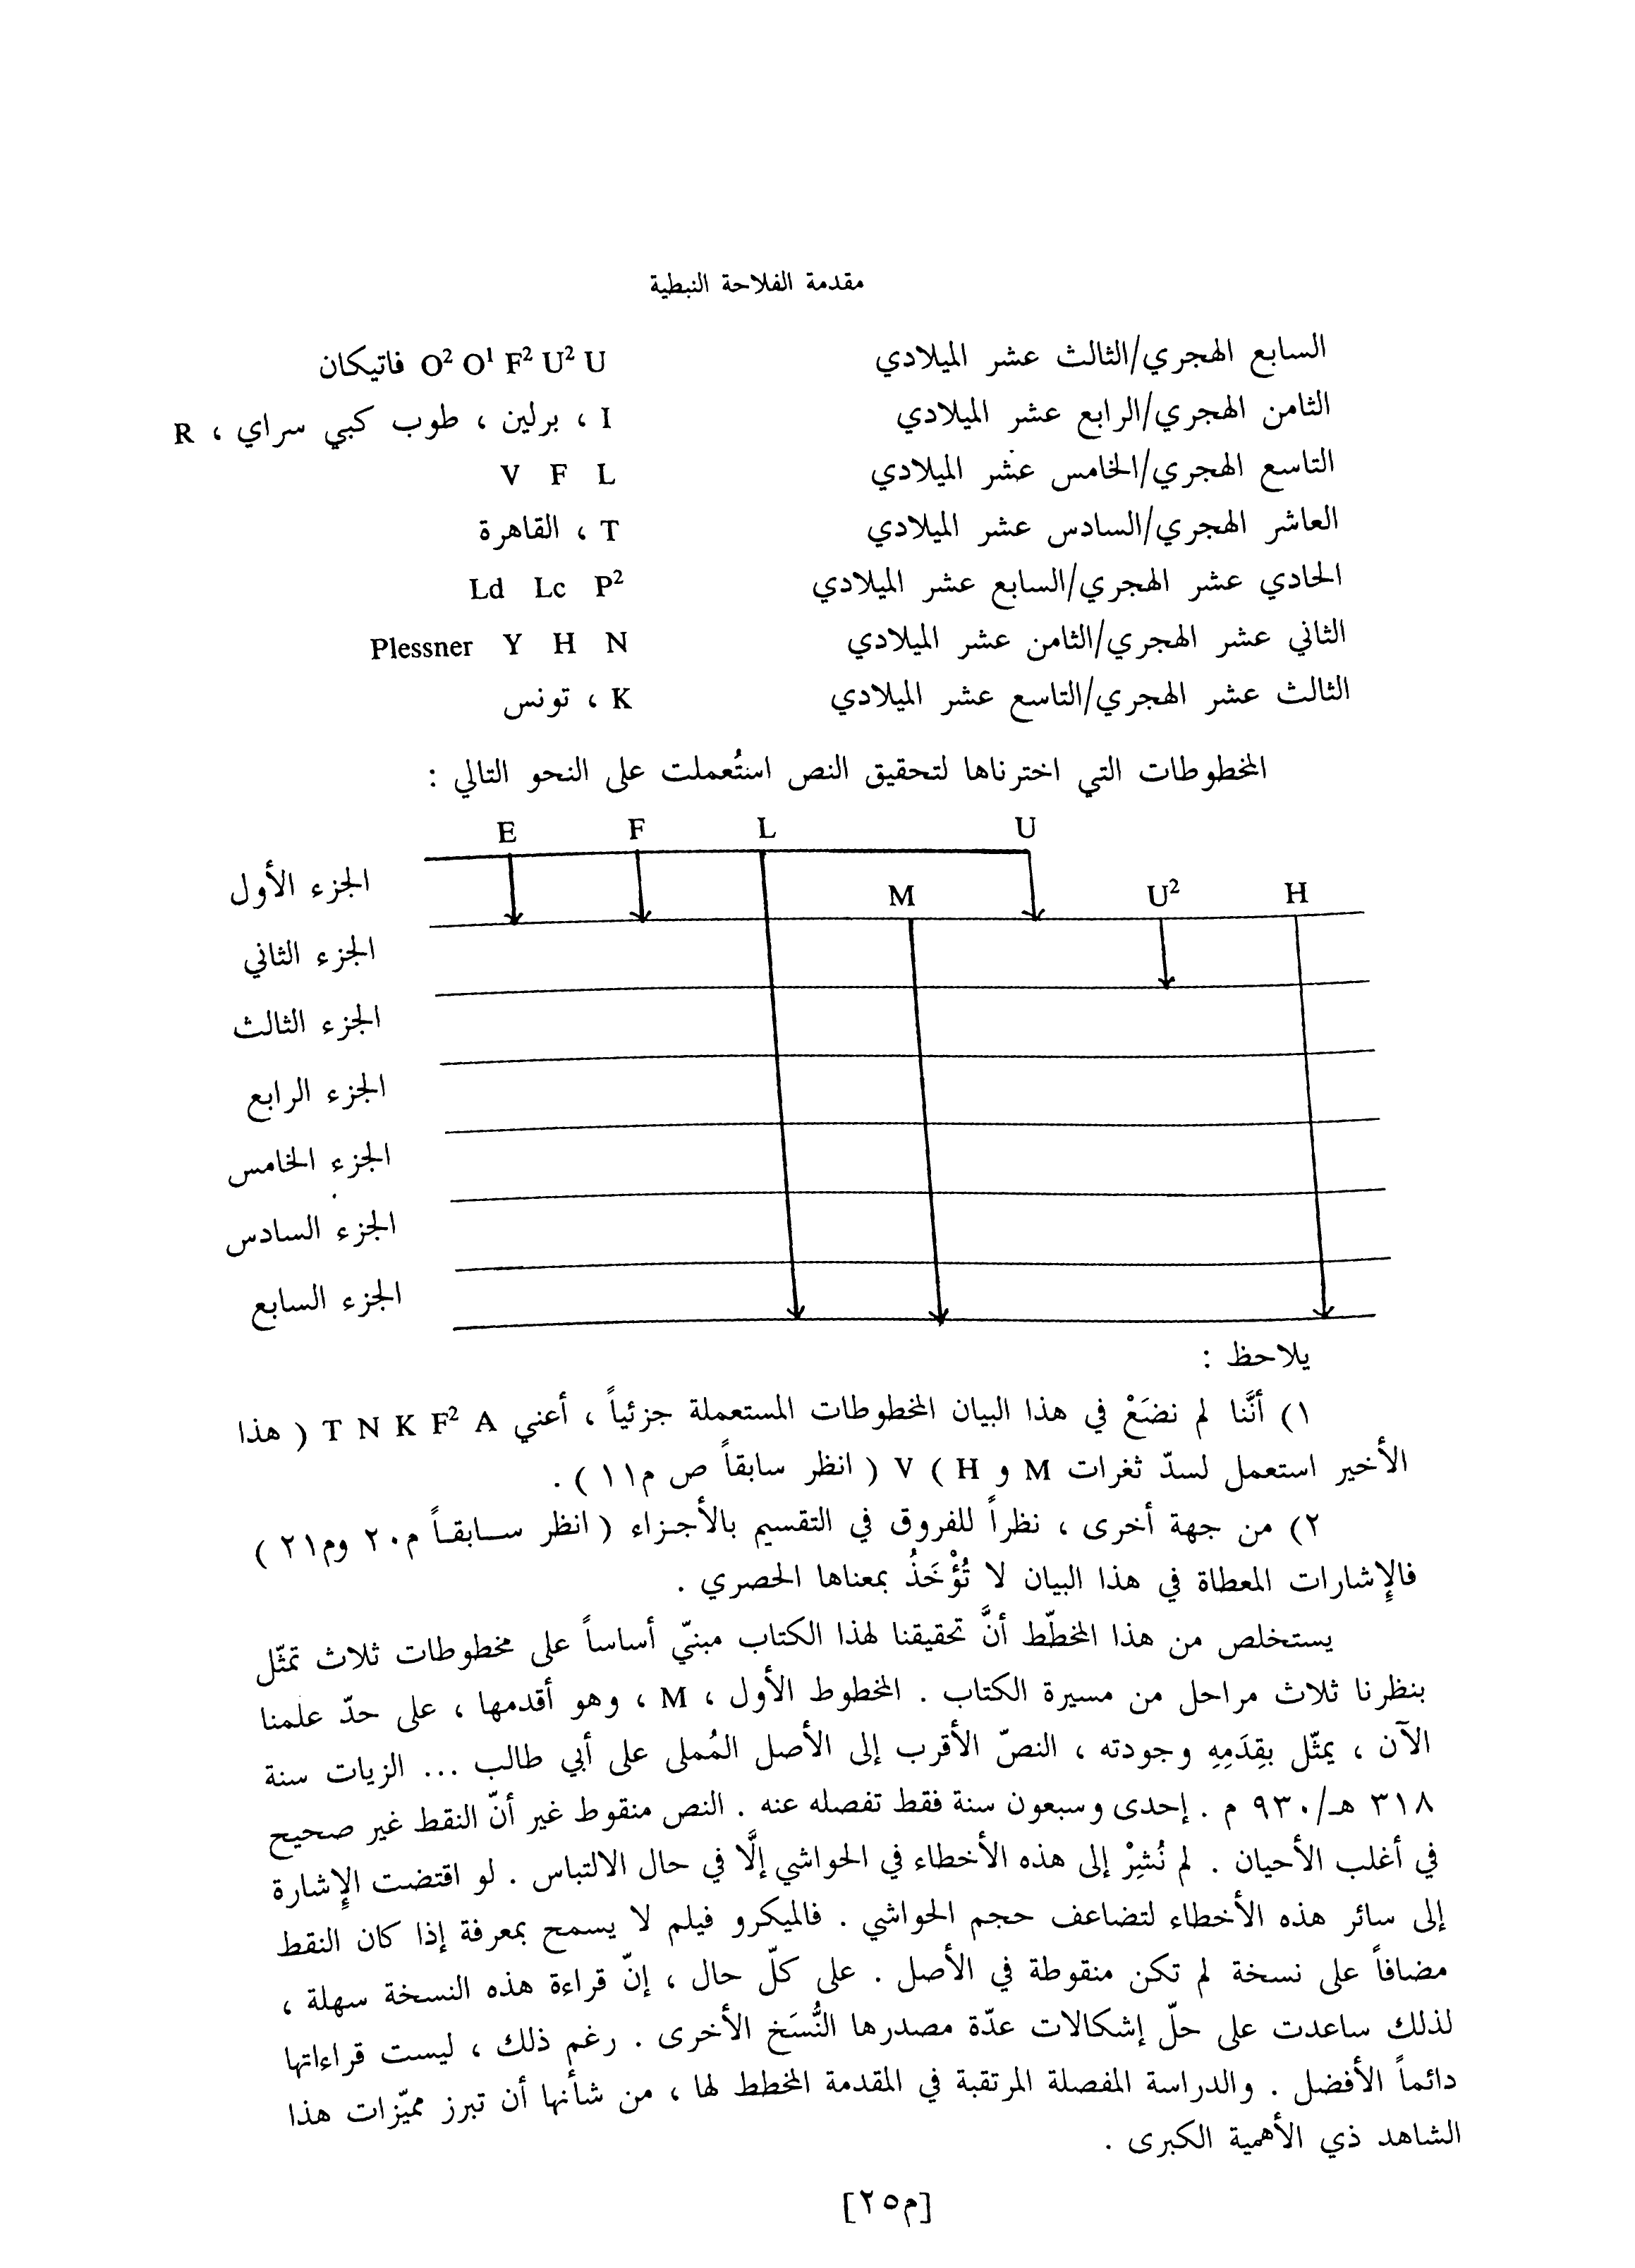 مقدمة الفلاحة النبطية
السابع الهجري/الثالث عشر الميلادي U U² F² O¹ O² فاتيكان
الثامن الهجري/الرابع عشر الميلادي I ، برلين ، طوب كبي سراي ، R
التاسع الهجري/الخامس عشر الميلادي L F V
العاشر الهجري/السادس عشر الميلادي T ، القاهرة
الحادي عشر الهجري/السابع عشر الميلادي P² Lc Ld
الثاني عشر الهجري/الثامن عشر الميلادي N H Y Plessner
الثالث عشر الهجري/التاسع عشر الميلادي K ، تونس
المخطوطات التي اخترناها لتحقيق النص استُعملت على النحو التالي :
E F L U
M U² H
الجزء الأول
الجزء الثاني
الجزء الثالث
الجزء الرابع
الجزء الخامس
الجزء السادس
الجزء السابع
يلاحظ :
١) أنَّنا لم نضَعْ في هذا البيان المخطوطات المستعملة جزئياً ، أعني T N K F² A ( هذا
الأخير استعمل لسدّ ثغرات M و H ) V ( انظر سابقاً ص م١١ ) .
٢) من جهة أخرى ، نظراً للفروق في التقسيم بالأجزاء ( انظر سابقاً م٢٠ وم٢١ )
فالإشارات المعطاة في هذا البيان لا تُؤْخَذُ بمعناها الحصري .
يستخلص من هذا المخطّط أنَّ تحقيقنا لهذا الكتاب مبنيّ أساساً على مخطوطات ثلاث تمثّل
بنظرنا ثلاث مراحل من مسيرة الكتاب . المخطوط الأول ، M ، وهو أقدمها ، على حدّ علمنا
الآن ، يمثّل بقِدَمِهِ وجودته ، النصّ الأقرب إلى الأصل المُملى على أبي طالب ... الزيات سنة
٣١٨ هـ/٩٣٠ م . إحدى وسبعون سنة فقط تفصله عنه . النص منقوط غير أنّ النقط غير صحيح
في أغلب الأحيان . لم نُشِرْ إلى هذه الأخطاء في الحواشي إلَّا في حال الالتباس . لو اقتضت الإشارة
إلى سائر هذه الأخطاء لتضاعف حجم الحواشي . فالميكرو فيلم لا يسمح بمعرفة إذا كان النقط
مضافاً على نسخة لم تكن منقوطة في الأصل . على كلّ حال ، إنّ قراءة هذه النسخة سهلة ،
لذلك ساعدت على حلّ إشكالات عدّة مصدرها النُّسَخ الأخرى . رغم ذلك ، ليست قراءاتها
دائماً الأفضل . والدراسة المفصلة المرتقبة في المقدمة المخطط لها ، من شأنها أن تبرز مميّزات هذا
الشاهد ذي الأهمية الكبرى .
[م٢٥]